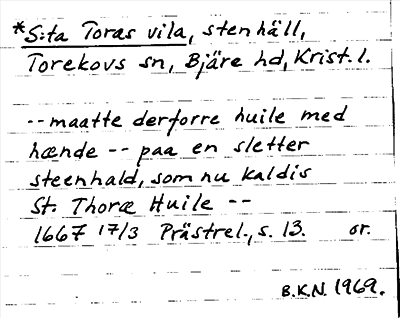 *S:ta Toras vila, stenhäll,
Torekovs sn, Bjäre hd, Krist. l.
-- maatte derforre huile med
hænde -- paa en sletter
steenhald, som nu kaldis
St. Thoræ Huile --
1667 17/3 Prästrel., s. 13. or.
B.K.N. 1969.